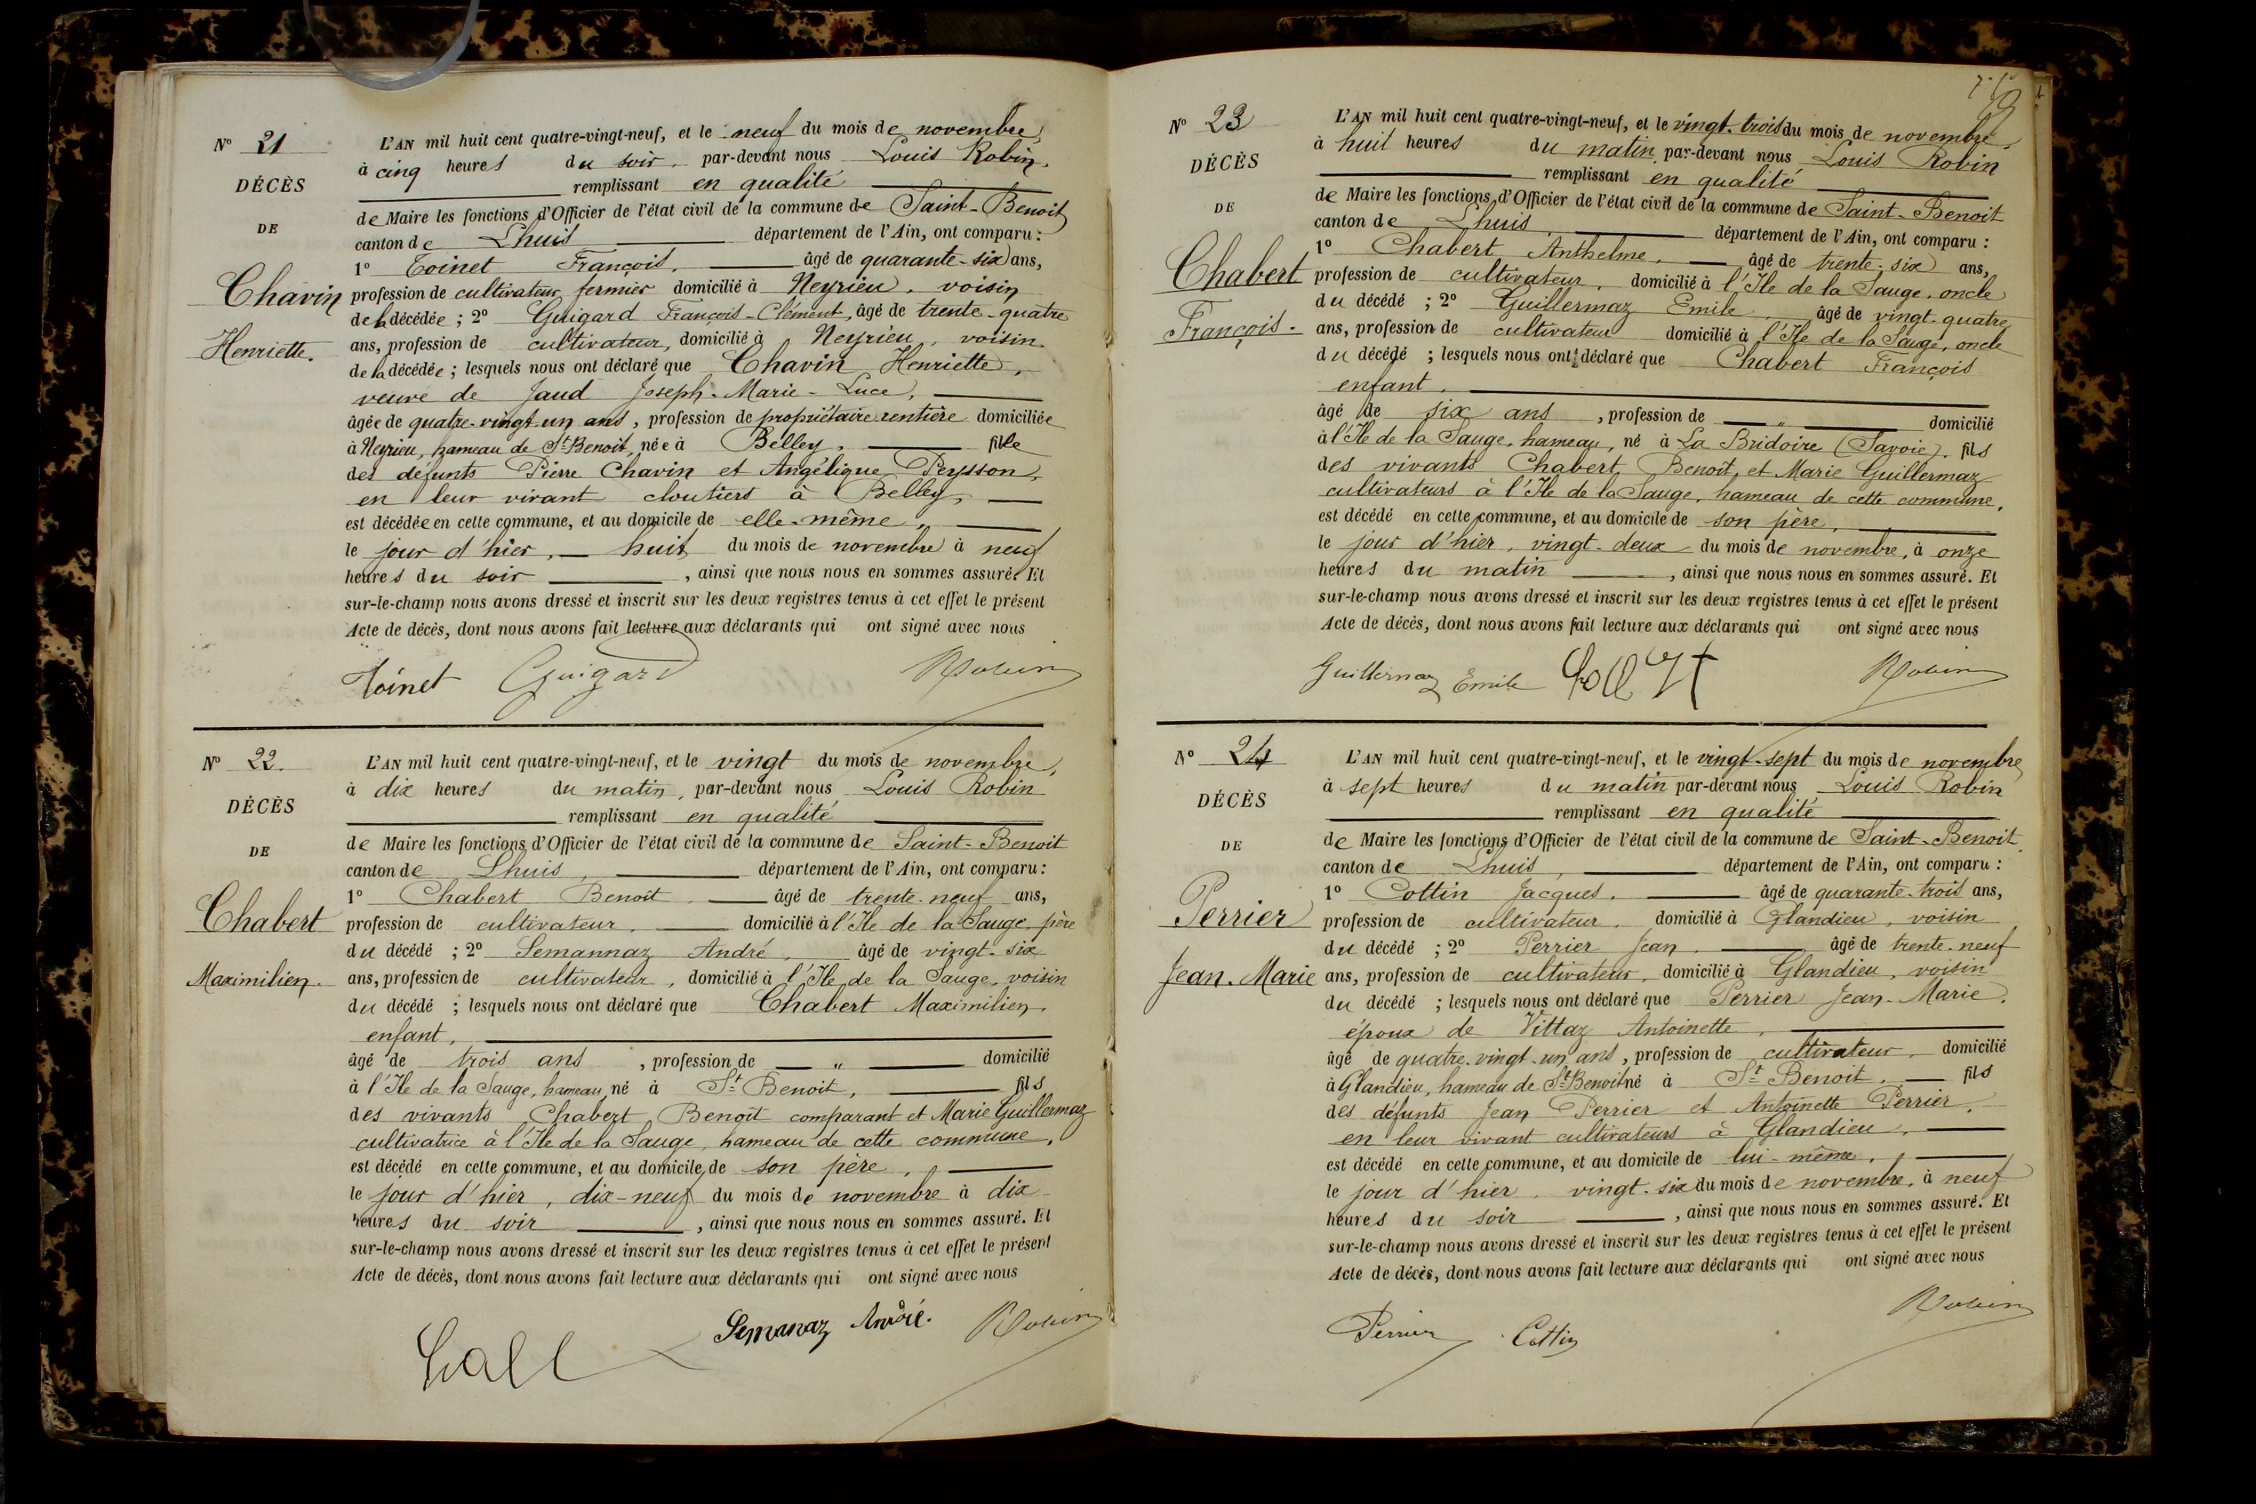 N° 21
DÉCÈS
DE
Chavin
Henriette.
L'AN mil huit cent quatre-vingt-neuf, et le neuf du mois de novembre,
à cinq heures du soir, par-devant nous Louis Robin,
remplissant en qualité
de Maire les fonctions d'Officier de l'état civil de la commune de Saint-Benoit
canton de Lhuis département de l'Ain, ont comparu :
1° Toinet François, âgé de quarante-six ans,
profession de cultivateur fermier domicilié à Neyrieu, voisin
de la décédée ; 2° Guigard François-Clément, âgé de trente-quatre
ans, profession de cultivateur, domicilié à Neyrieu, voisin
de la décédée ; lesquels nous ont déclaré que Chavin Henriette,
veuve de Jaud Joseph-Marie-Luce,
âgée de quatre-vingt-un ans, profession de propriétaire rentière domiciliée
à Neyrieu, hameau de St Benoit, née à Belley, fille
des défunts Pierre Chavin et Angélique Peysson,
en leur vivant cloutiers à Belley,
est décédée en cette commune, et au domicile de elle-même,
le jour d'hier, huit du mois de novembre à neuf
heures du soir, ainsi que nous nous en sommes assuré. Et
sur-le-champ nous avons dressé et inscrit sur les deux registres tenus à cet effet le présent
Acte de décès, dont nous avons fait lecture aux déclarants qui ont signé avec nous
Toinet Guigard Robin
N° 22.
DÉCÈS
DE
Chabert
Maximilien.
L'AN mil huit cent quatre-vingt-neuf, et le vingt du mois de novembre,
à dix heures du matin, par-devant nous Louis Robin
remplissant en qualité
de Maire les fonctions d'Officier de l'état civil de la commune de Saint-Benoit
canton de Lhuis, département de l'Ain, ont comparu :
1° Chabert Benoît âgé de trente-neuf ans,
profession de cultivateur, domicilié à l'Ile de la Sauge, père
du décédé ; 2° Semannaz André, âgé de vingt-six
ans, profession de cultivateur, domicilié à l'Ile de la Sauge, voisin
du décédé ; lesquels nous ont déclaré que Chabert Maximilien,
enfant,
âgé de trois ans, profession de „ domicilié
à l'Ile de la Sauge, hameau, né à St Benoit, fils
des vivants Chabert Benoît comparant et Marie Guillermaz
cultivatrice à l'Ile de la Sauge, hameau de cette commune,
est décédé en cette commune, et au domicile de son père,
le jour d'hier, dix-neuf du mois de novembre à dix
heures du soir, ainsi que nous nous en sommes assuré. Et
sur-le-champ nous avons dressé et inscrit sur les deux registres tenus à cet effet le présent
Acte de décès, dont nous avons fait lecture aux déclarants qui ont signé avec nous
Semanaz André. Robin
N° 23
DÉCÈS
DE
Chabert
François.
L'AN mil huit cent quatre-vingt-neuf, et le vingt-trois du mois de novembre,
à huit heures du matin, par-devant nous Louis Robin
remplissant en qualité
de Maire les fonctions d'Officier de l'état civil de la commune de Saint-Benoit
canton de Lhuis département de l'Ain, ont comparu :
1° Chabert Anthelme, âgé de trente-six ans,
profession de cultivateur, domicilié à l'Ile de la Sauge, oncle
du décédé ; 2° Guillermaz Emile âgé de vingt-quatre
ans, profession de cultivateur domicilié à l'Ile de la Sauge, oncle
du décédé ; lesquels nous ont déclaré que Chabert François
enfant,
âgé de six ans, profession de „ domicilié
à l'Ile de la Sauge, hameau, né à La Bridoire (Savoie), fils
des vivants Chabert Benoît, et Marie Guillermaz
cultivateurs à l'Ile de la Sauge, hameau de cette commune,
est décédé en cette commune, et au domicile de son père,
le jour d'hier, vingt-deux du mois de novembre, à onze
heures du matin, ainsi que nous nous en sommes assuré. Et
sur-le-champ nous avons dressé et inscrit sur les deux registres tenus à cet effet le présent
Acte de décès, dont nous avons fait lecture aux déclarants qui ont signé avec nous
Guillermaz Emile Robin
N° 24
DÉCÈS
DE
Perrier
Jean-Marie
L'AN mil huit cent quatre-vingt-neuf, et le vingt-sept du mois de novembre
à sept heures du matin par-devant nous Louis Robin
remplissant en qualité
de Maire les fonctions d'Officier de l'état civil de la commune de Saint-Benoit
canton de Lhuis, département de l'Ain, ont comparu :
1° Cottin Jacques, âgé de quarante-trois ans,
profession de cultivateur, domicilié à Glandieu, voisin
du décédé ; 2° Perrier Jean, âgé de trente-neuf
ans, profession de cultivateur, domicilié à Glandieu, voisin
du décédé ; lesquels nous ont déclaré que Perrier Jean-Marie,
époux de Vittaz Antoinette,
âgé de quatre-vingt-un ans, profession de cultivateur, domicilié
à Glandieu, hameau de St Benoit né à St Benoit, fils
des défunts Jean Perrier et Antoinette Perrier,
en leur vivant cultivateurs à Glandieu,
est décédé en cette commune, et au domicile de lui-même,
le jour d'hier, vingt-six du mois de novembre, à neuf
heures du soir, ainsi que nous nous en sommes assuré. Et
sur-le-champ nous avons dressé et inscrit sur les deux registres tenus à cet effet le présent
Acte de décès, dont nous avons fait lecture aux déclarants qui ont signé avec nous
Perrier Cottin Robin